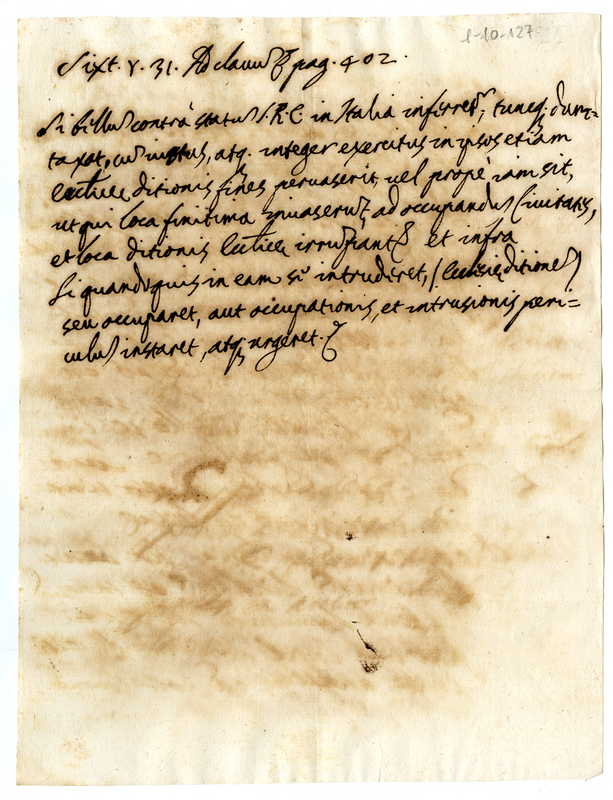 1-10-127
Sixt. V. 31. Ad clavum pag. 402.
Si bellum contra statum S.R.E. in Italia inferret, tuncq. dum=
taxat, cum iustus, atq. integer exercitus in ipsos etiam
Ecclesiae ditionis fines pervaserit, vel prope iam sit,
ut qui loca finitima invaserunt ad occupandum Civitates,
et loca ditionis Ecclesiae irrumpant et infra
Si quando quis in eam se intruderet, (Ecclesiae ditionem)
seu occuparet, aut occupationis, et intrusionis peri=
culum instaret, atq. urgeret.